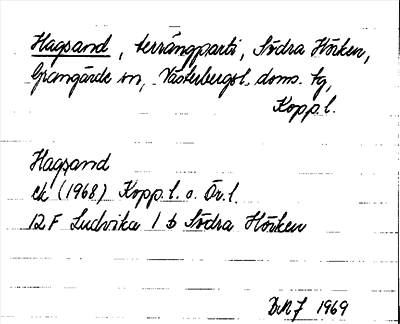 Hagsand, terrängparti, Södra Hörken,
Grangärde sn, Västerbergsl. doms. tg,
Kopp.l.
Hagsand
ek (1968) Kopp.l. o. Ör.l.
12 F Ludvika 1 b Södra Hörken
1969